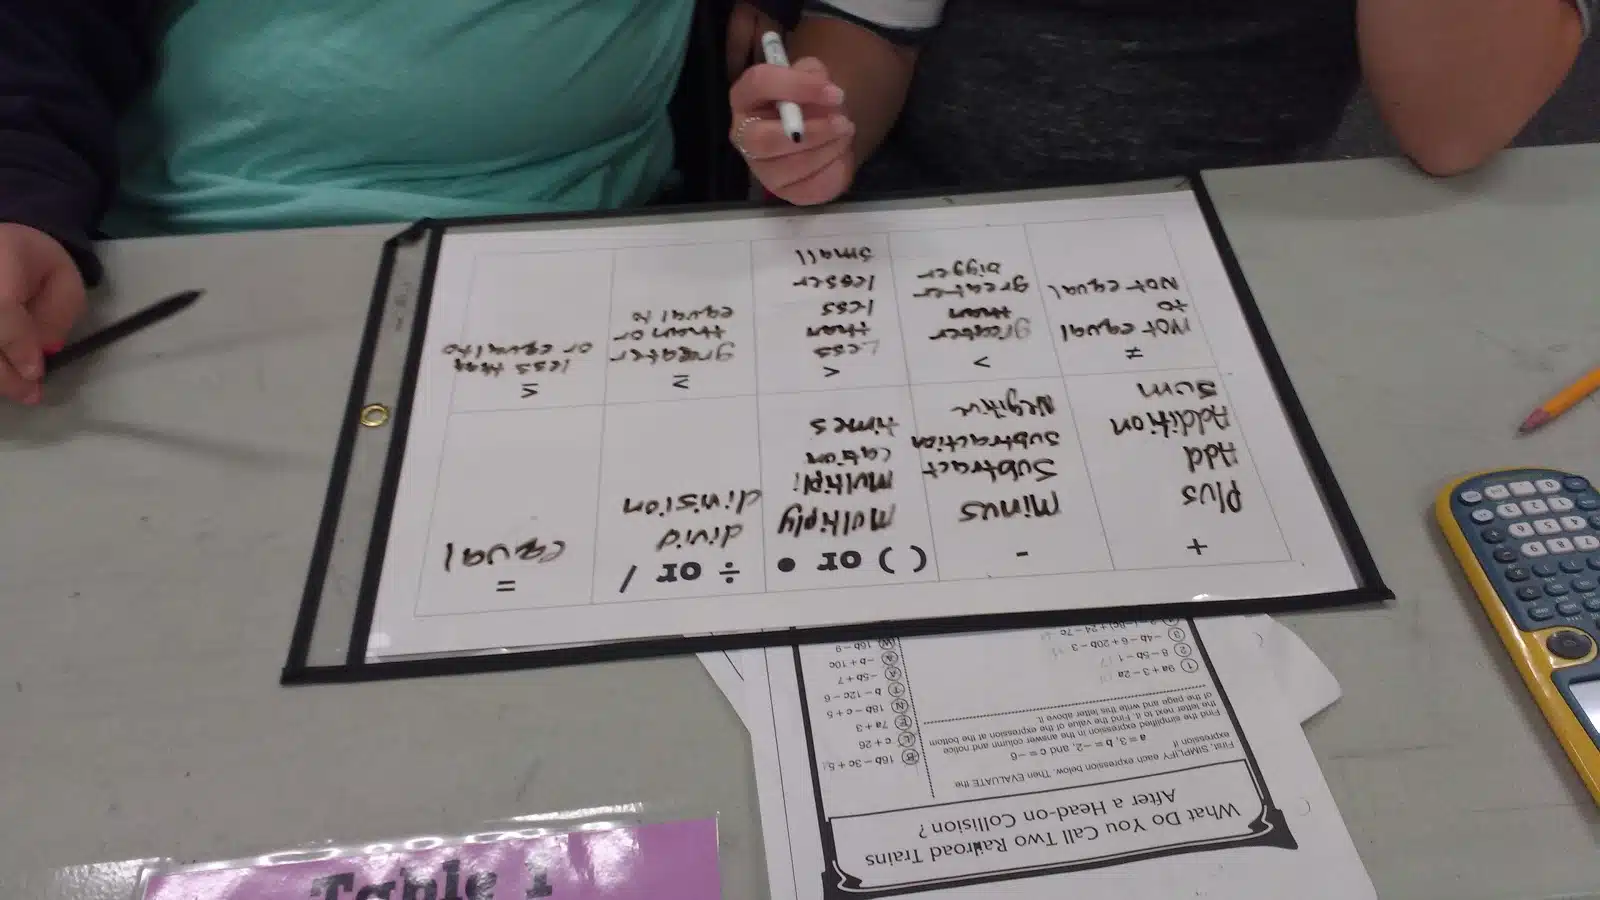 +
Plus
Add
Addition
Sum
-
Minus
Subtract
subtraction
Negitive
( ) or •
Multiply
Multipli
cation
times
÷ or /
divid
division
=
equal
≠
Not equal
to
Not equal
>
greater
than
greater
bigger
<
Less
than
less
lesser
small
≥
greater
than or
equal to
≤
less than
or equal to
What Do You Call Two Railroad Trains
After a Head-on Collision?
First, SIMPLIFY each expression below. Then EVALUATE the
expression if
a = 3, b = −2, and c = −6
Find the simplified expression in the answer column and notice
the letter next to it. Find the value of the expression at the bottom
of the page and write this letter above it.
1 9a + 3 − 2a
2 8 − 5b − 1
3 −4b − 6 + 20b − 3
B 16b − 3c + 5
L c + 26
E 7a + 3
N 18b − c + 5
T b − 12c − 6
A −5b + 7
−b + 10c
W 16b − 9
Table 1